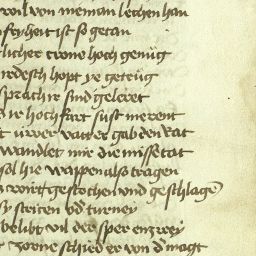 wil von nieman lechen han
freyheit ist so getan
licher crone hoch genůg
irdesch hopt ye getrůg
sprach ir sind geleret
ir hochfart sust meren
üwer vatter gab den rat
wandlet mir die missetat
sol hie wappen also tragen
wirt gestochen und geschlagen
sy striten vñ turney
belibt vil der sper enzwey
zorne schied er von d magt